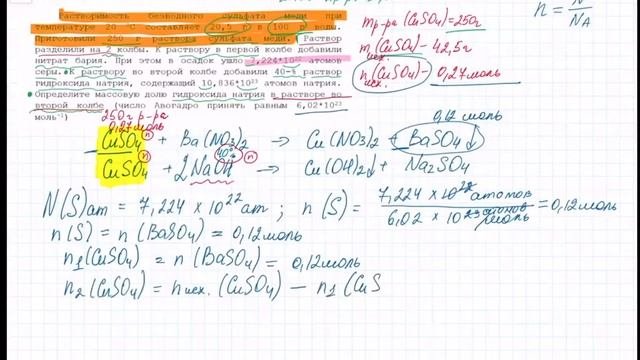 Растворимость безводного сульфата меди при
температуре 20 °С составляет 20,5 г в 100 г воде.
Приготовили 250 г раствора сульфата меди. Раствор
разделили на 2 колбы. К раствору в первой колбе добавили
нитрат бария. При этом в осадок ушло 7,224*10²² атомов
серы. К раствору во второй колбе добавили 40-% раствор
гидроксида натрия, содержащий 10,836*10²³ атомов натрия.
Определите массовую долю гидроксида натрия в растворе во
второй колбе (число Авогадро принять равным 6,02*10²³
моль⁻¹)
mр-ра (CuSO4)=250г
mисх. (CuSO4)-42,5г
nисх. (CuSO4)- 0,27моль
n = N/NA
250г р-ра
0,27моль
0,12 моль
CuSO4 (n) + Ba(NO3)2 → Cu(NO3)2 + BaSO4↓
40%
CuSO4 (n) + 2NaOH (n) → Cu(OH)2↓ + Na2SO4
N(S)ат = 7,224 × 10²² ат ; n(S) = 7,224 × 10²² атомов / 6,02 × 10²³ атомов/моль = 0,12моль
n(S) = n(BaSO4) = 0,12моль
n1(CuSO4) = n(BaSO4) = 0,12моль
n2(CuSO4) = nисх. (CuSO4) – n1(CuS